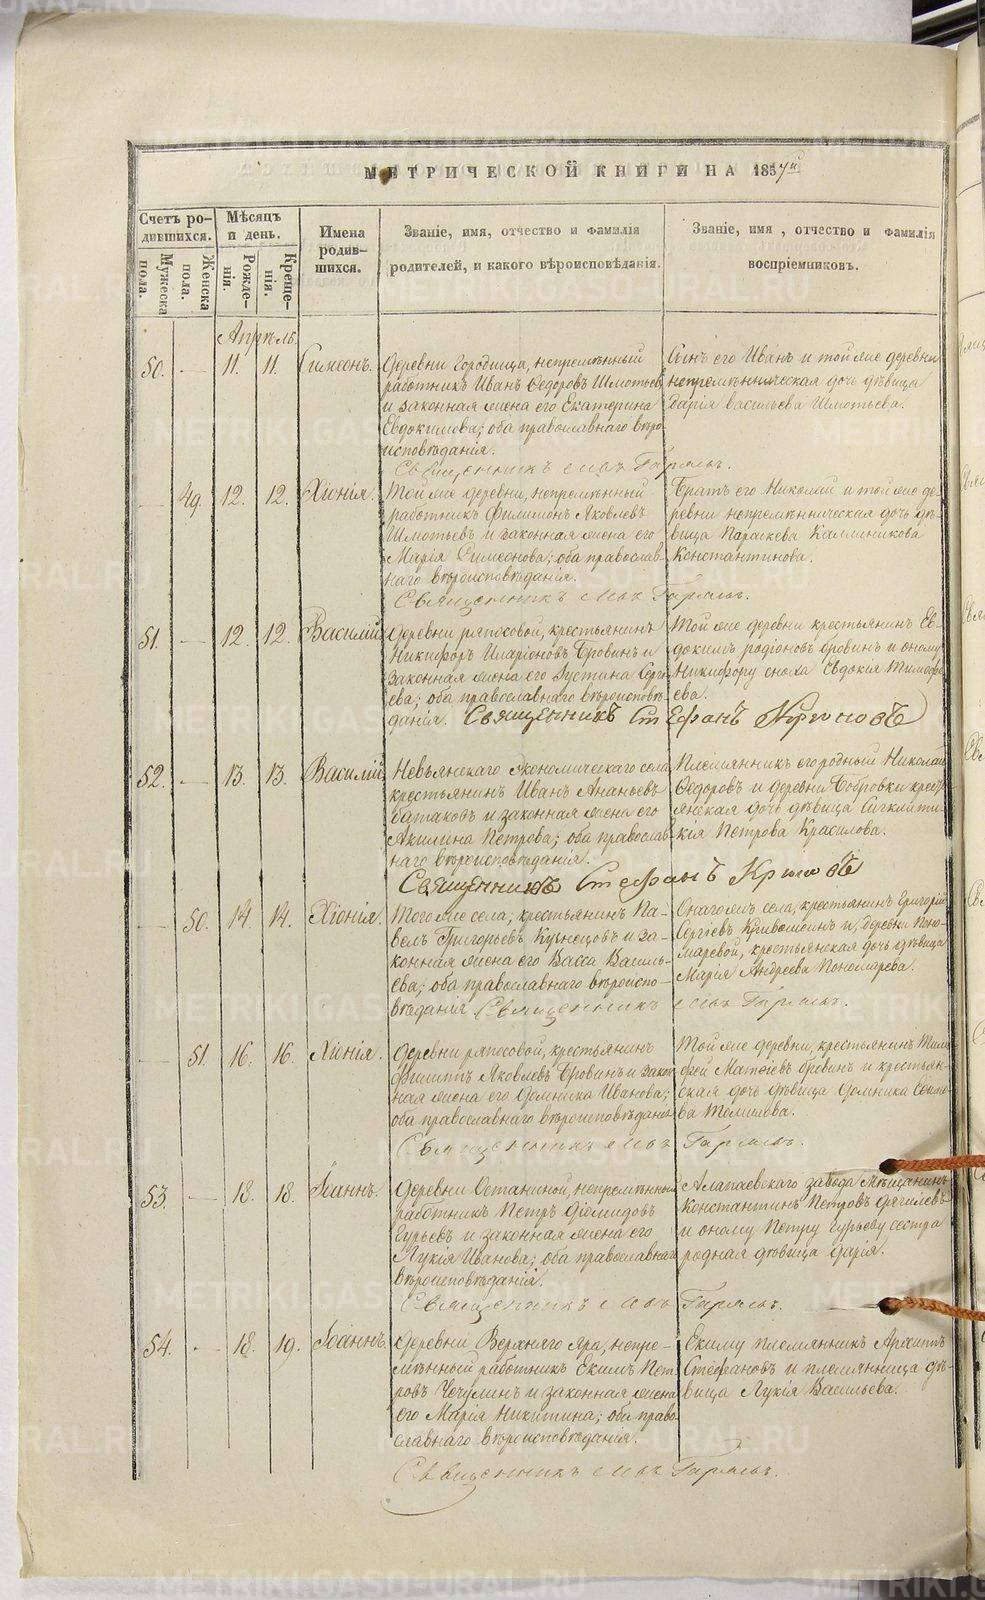 МЕТРИЧЕСКОЙ КНИГИ НА 1857й
Счетъ ро-
дившихся.
Мужеска
пола.
Женска
пола.
Мѣсяцъ
и день.
Рожде-
нія.
Креще-
нія.
Имена
родив-
шихся.
Званіе, имя, отчество и фамилія
родителей, и какого вѣроисповѣданія.
Званіе, имя, отчество и фамилія
воспріемниковъ.
Апрѣль
50. — 11. 11. Симеонъ.
Деревни Городища, непремѣнный
работникъ Иванъ Ѳедоровъ Шмотьевъ
и законная жена его Екатерина
Евдокимова; оба православнаго вѣро
исповѣданія.
Сынъ его Иванъ и той же деревни
непремѣнническая дочь дѣвица
Дарія Васильева Шмотьева.
Священникъ
— 49. 12. 12. Хіонія.
Той же деревни, непремѣнный
работникъ Филимонъ Яковлевъ
Шмотьевъ и законная жена его
Марія Симеонова; оба православ-
наго вѣроисповѣданія.
Братъ его Николай и той же де-
ревни непремѣнническая дочь дѣ-
вица Параскева Каллиникова
Константинова.
Священникъ
51. — 12. 12. Василій
Деревни Ряпосовой, крестьянинъ
Никифоръ Иларіоновъ Бровинъ и
законная жена его Іустина Серге
ева; оба православнаго вѣроисповѣ-
данія. Священникъ Стефанъ
Той же деревни крестьянинъ Ев-
докимъ Родіоновъ Бровинъ и оному
Никифору сноха Евдокія Тимофе
ева.
52. — 13. 13. Василій
Невьянскаго Экономическаго села
крестьянинъ Иванъ Ананьевъ
Батаковъ и законная жена его
Акилина Петрова; оба православ-
наго вѣроисповѣданія.
Племянникъ его родный Николай
Ѳедоровъ и деревни Бобровки крест
янская дочь дѣвица Сигклити-
кія Петрова Красилова.
Священникъ Стефанъ
— 50. 14. 14. Хіонія
Того же села, крестьянинъ Па-
велъ Григорьевъ Кузнецовъ и за-
конная жена его Васса Василь-
ева; оба православнаго вѣроиспо-
вѣданія Священникъ
Онаго жъ села, крестьянинъ Григорій
Сергіевъ и, деревни Поно-
маревой, крестьянская дочь дѣвица
Марія Андреева Пономарева.
— 51. 16. 16. Хіонія.
Деревни Ряпосовой, крестьянинъ
Филиппъ Яковлевъ Бровинъ и закон
ная жена его Домника Иванова;
оба православнаго вѣроисповѣданія
Той же деревни, крестьянинъ Тимо
фей Матѳіевъ Бровинъ и крестьян-
ская дочь дѣвица Домника
ва Томилова.
Священникъ
53. — 18. 18. Іоаннъ.
Деревни Останиной, непремѣнный
работникъ Петръ Діомидовъ
Гурьевъ и законная жена его
Лукія Иванова; оба православнаго
вѣроисповѣданія.
Алапаевскаго завода Мѣщанинъ
Константинъ Петровъ
и оному Петру Гурьеву сестра
родная дѣвица Дарія.
Священникъ
54. — 18. 19. Іоаннъ.
Деревни Верхняго Яра, непре-
мѣнный работникъ Екимъ Пет
ровъ Чечулинъ и законная жена
его Марія Никитина; оба право-
славнаго вѣроисповѣданія.
Екиму племянникъ Архиппъ
Стефановъ и племянница дѣ-
вица Лукія Васильева.
Священникъ
METRIKI.GASO-URAL.RU